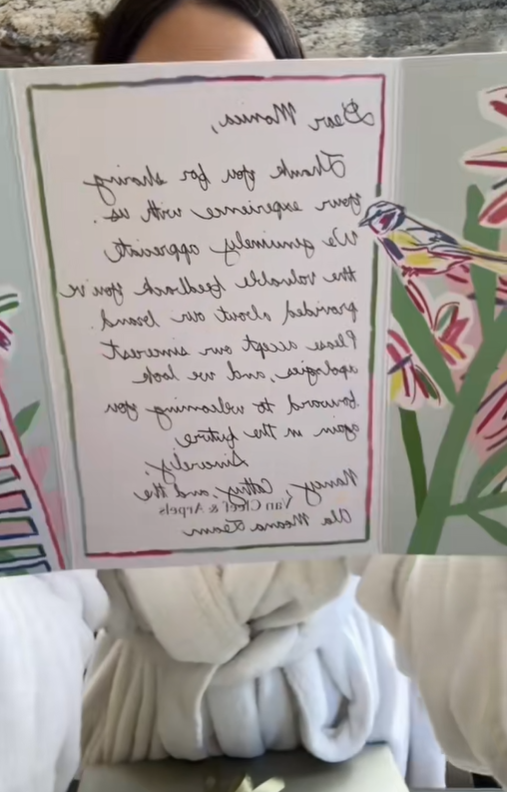 Dear Monica,
Thank you for sharing
your experience with us.
We genuinely appreciate
the valuable feedback you've
provided about our brand.
Please accept our sincerest
apologies, and we look
forward to welcoming you
again in the future
Sincerely,
Nancy, Cathy, and the
Van Cleef & Arpels
Ala Moana Team